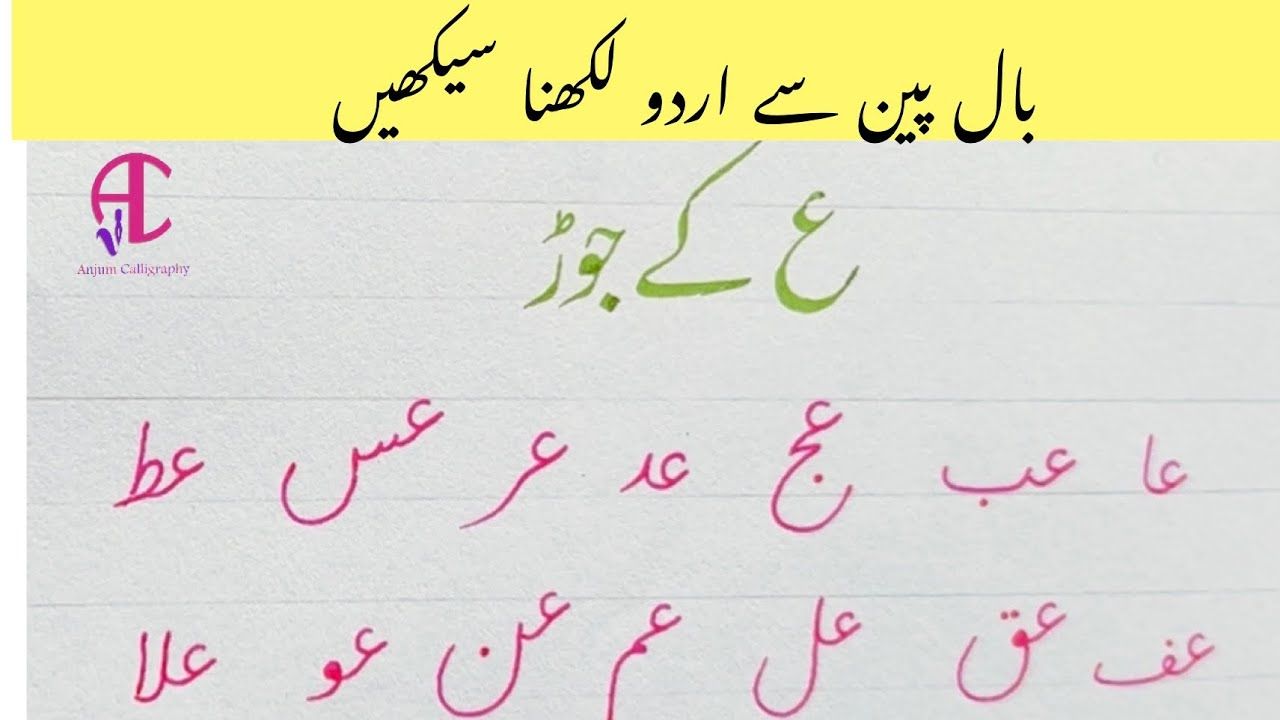 بال پین سے اردو لکھنا سیکھیں
Anjum Calligraphy
ع کے جوڑ
عا عب عج عد عر عس عط
عف عق عل عم عن عو علا